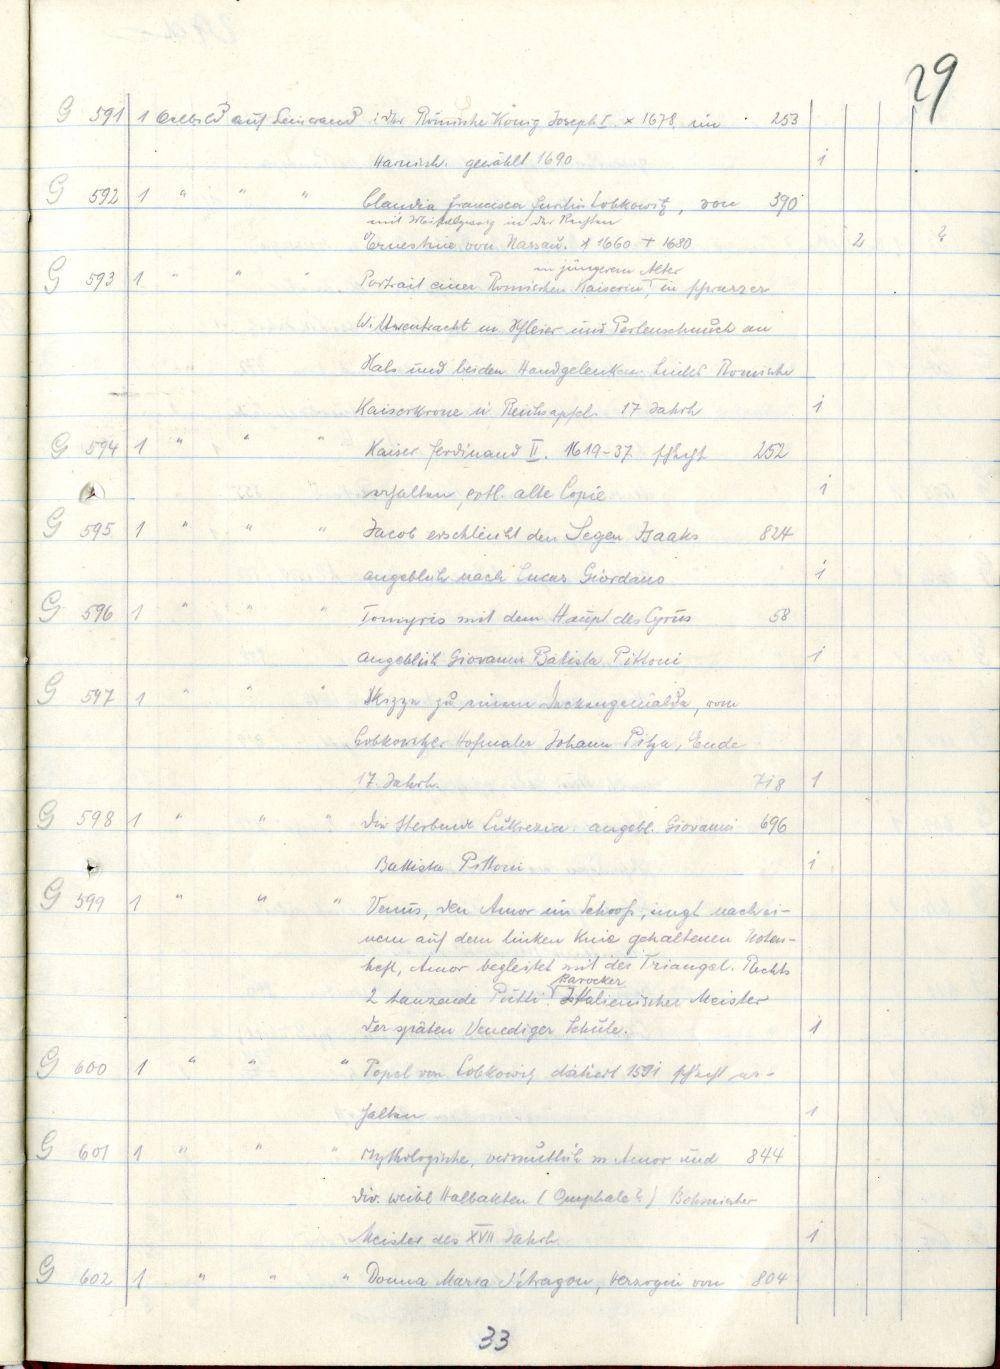 29
G 591 1 Oelbild auf Leinwand: Der Römische König Joseph I. * 1678, im 253
Harnisch. gewählt 1690 1
G 592 1 " " " Claudia Francisca Fürstin Lobkowitz, von 390
mit in der Rechten
Ernestine von Nassau. * 1660 + 1680 2 2
in jüngerem Alter
G 593 1 " " " Portrait einer Römischen Kaiserin, in schwarzer
Wittwentracht m. Schleier und Perlenschmuck an
Hals und beiden Handgelenken. Links Römische
Kaiserkrone u Reichsapfel. 17 Jahrh 1
G 594 1 " " " Kaiser Ferdinand II. 1619-37 schlecht 252
erhalten, evtl. alte Copie 1
G 595 1 " " " Jacob erschleicht den Segen Isaaks 824
angeblich nach Lucas Giordano 1
G 596 1 " " " Tomyris mit dem Haupt des Cyrus 58
angeblich Giovanni Batista Pittoni 1
G 597 1 " " " Skizze zu einem Deckengemälde, vom
Lobkowitzer Hofmaler Johann , Ende
17. Jahrh. 718 1
G 598 1 " " " Die Sterbende Lukrezia. angebl. Giovanni 696
Battista Pittoni 1
G 599 1 " " " Venus, den Amor im Schooß, singt nach ei-
nem auf dem linken Knie gehaltenen Noten-
heft, Amor begleitet mit der Triangel. Rechts
Barocker
2 tanzende Putti. Italienischer Meister
der späten Venediger Schule. 1
G 600 1 " " " Popel von Lobkowitz datiert 1591 schlecht er-
halten 1
G 601 1 " " " Mythologische, vermutlich m Amor und 844
div. weibl Halbakten (Omphale?) Böhmischer
Meister des XVII Jahrh 1
G 602 1 " " " Donna Maria d'Aragon, Herzogin von 804
33